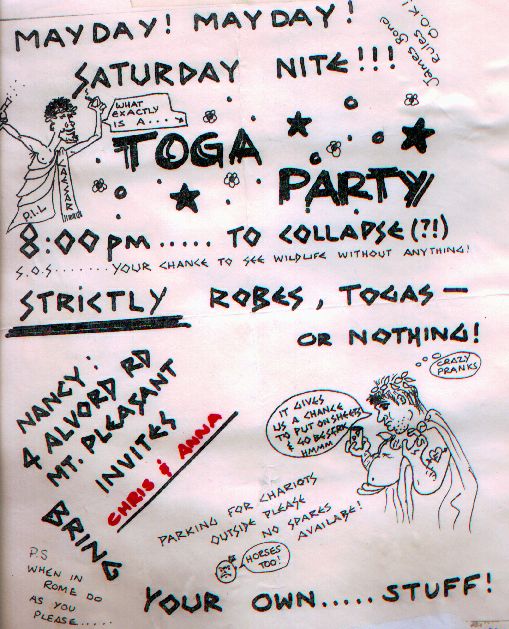 MAYDAY! MAYDAY!
James Bone
Rules
O.K!
SATURDAY NITE!!!
WHAT
EXACTLY
IS A....
TOGA
PARTY
P.I.L
8:00pm..... TO COLLAPSE(?!)
S.O.S........YOUR CHANCE TO SEE WILDLIFE WITHOUT ANYTHING!
STRICTLY ROBES, TOGAS —
OR NOTHING!
NANCY:
4 ALVORD RD
MT. PLEASANT
INVITES
CHRIS & ANNA
CRAZY
PRANKS
IT GIVES
US A CHANCE
TO PUT ON SHEETS
& GO BESERK
HMMM
PARKING FOR CHARIOTS
OUTSIDE PLEASE
NO SPARES
AVAILABE!
HORSES
TOO!
BRING
YOUR OWN.....STUFF!
P.S
WHEN IN
ROME DO
AS YOU
PLEASE.....